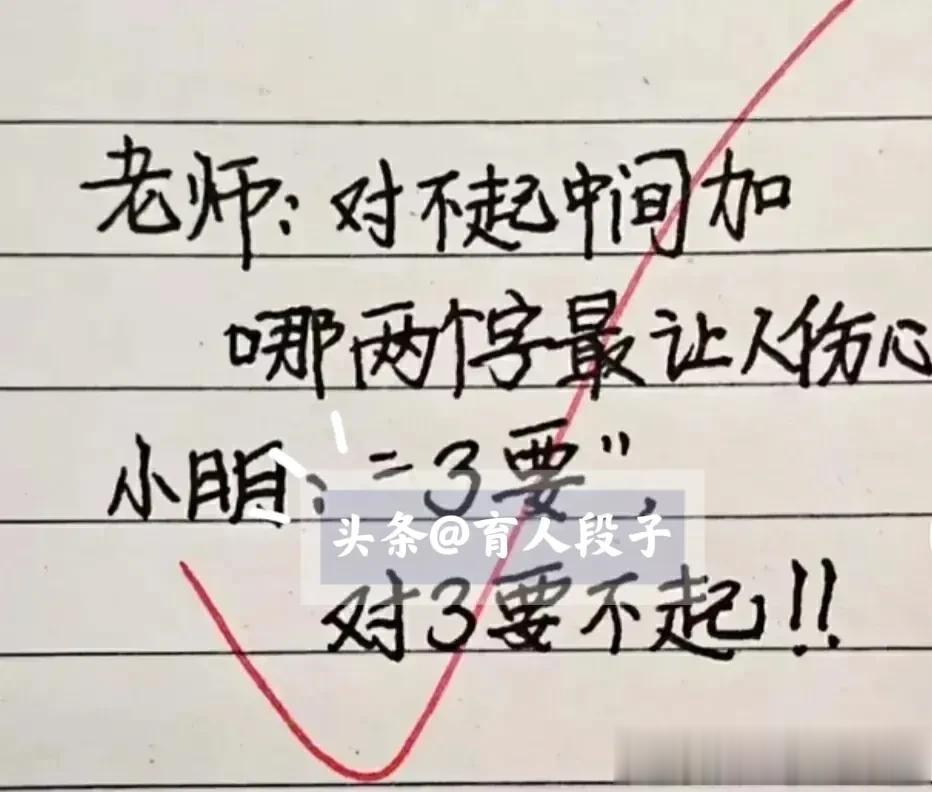 老师：对不起中间加
哪两个字最让人伤心
小明："3要"，
头条@育人段子
对3要不起!!